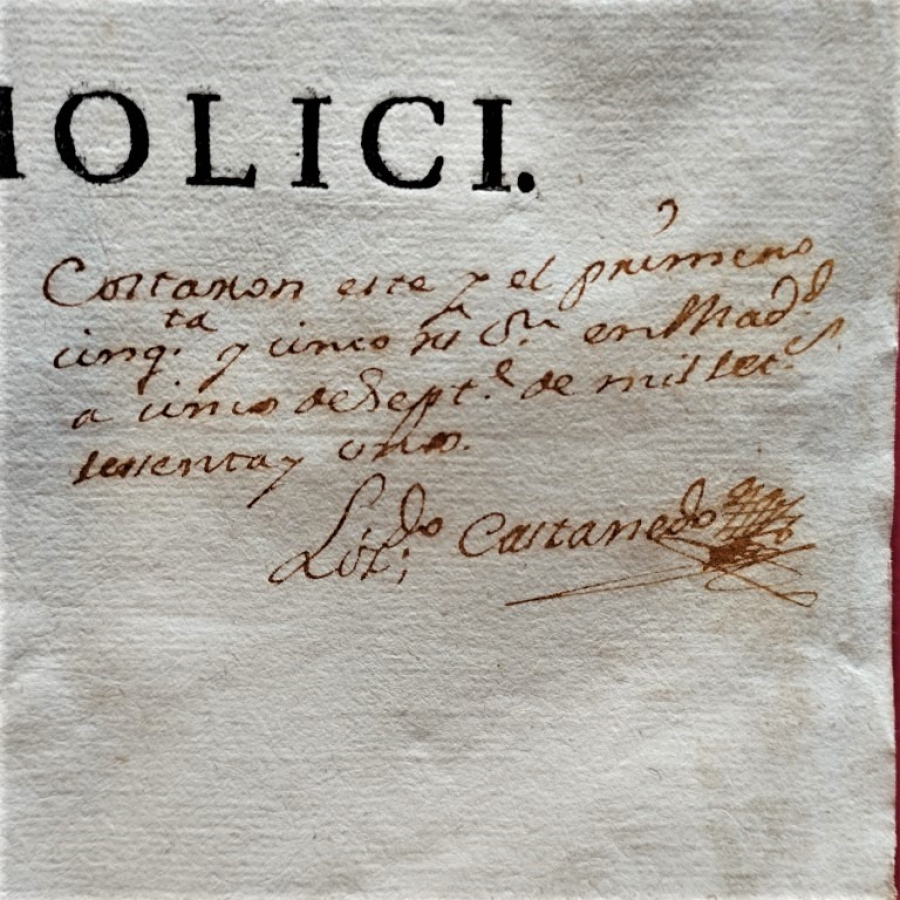 HOLICI.
Costaron este y el primero
cinq.ta y cinco rs en Mad.d
a cinco de Sept.e de mil setec.s
sesenta y uno.
Liz.do Castanedo